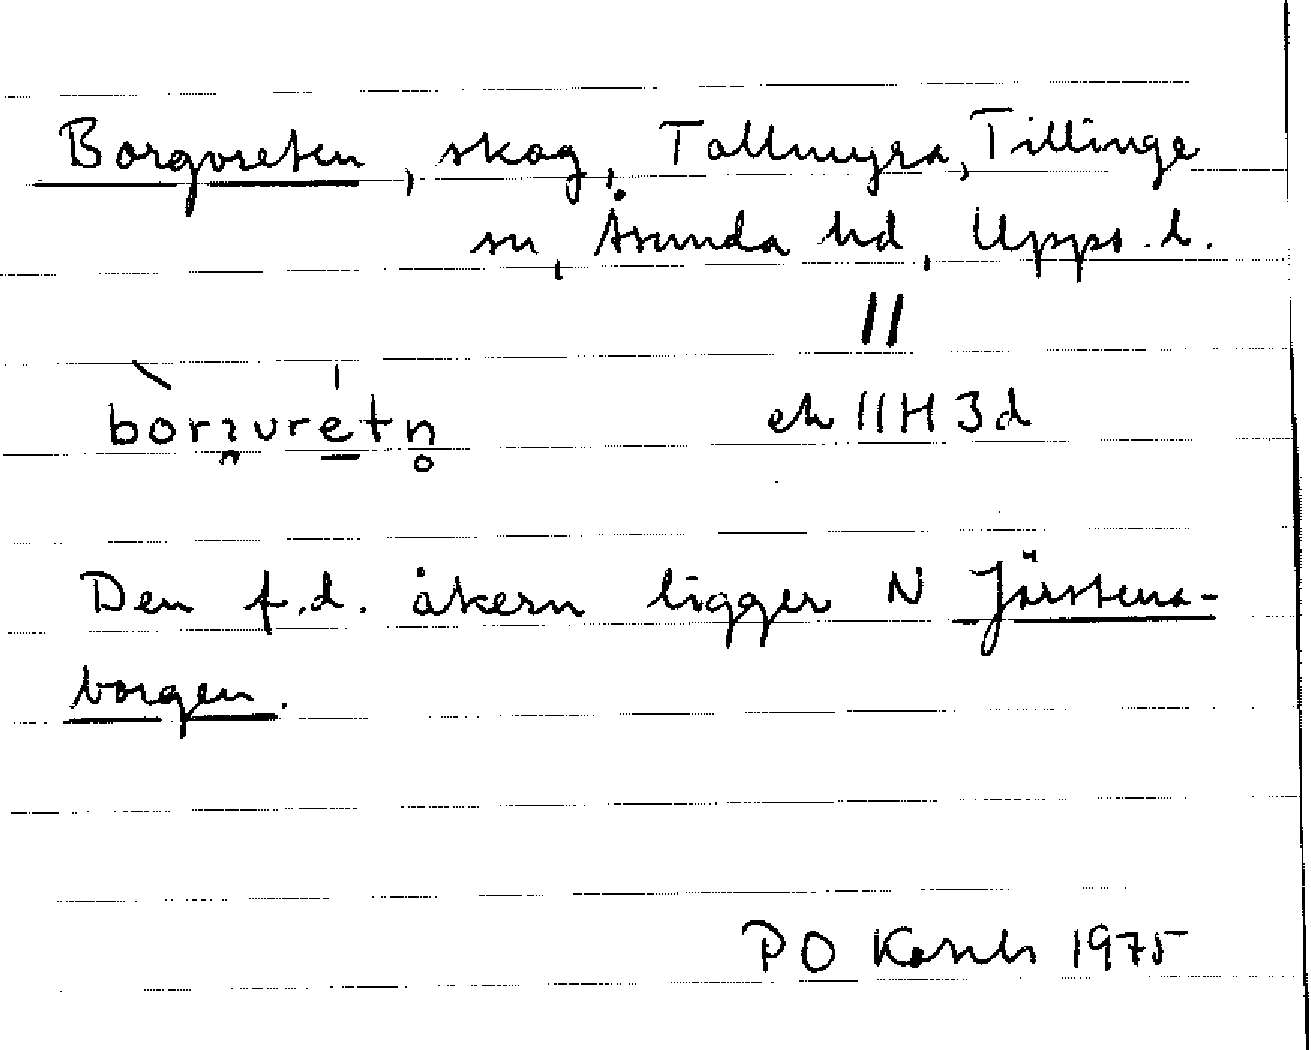 Borgvreten, skog, Tallmyra, Tillinge
sn, Åsunda hd, Upps. l.
11
ek 11H 3d
Den f.d. åkern ligger N Järstena-
borgen.
PO 1975